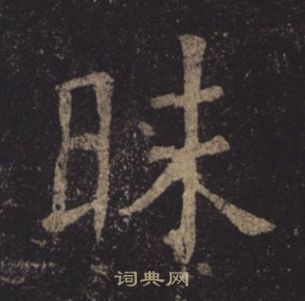 昧
词典网